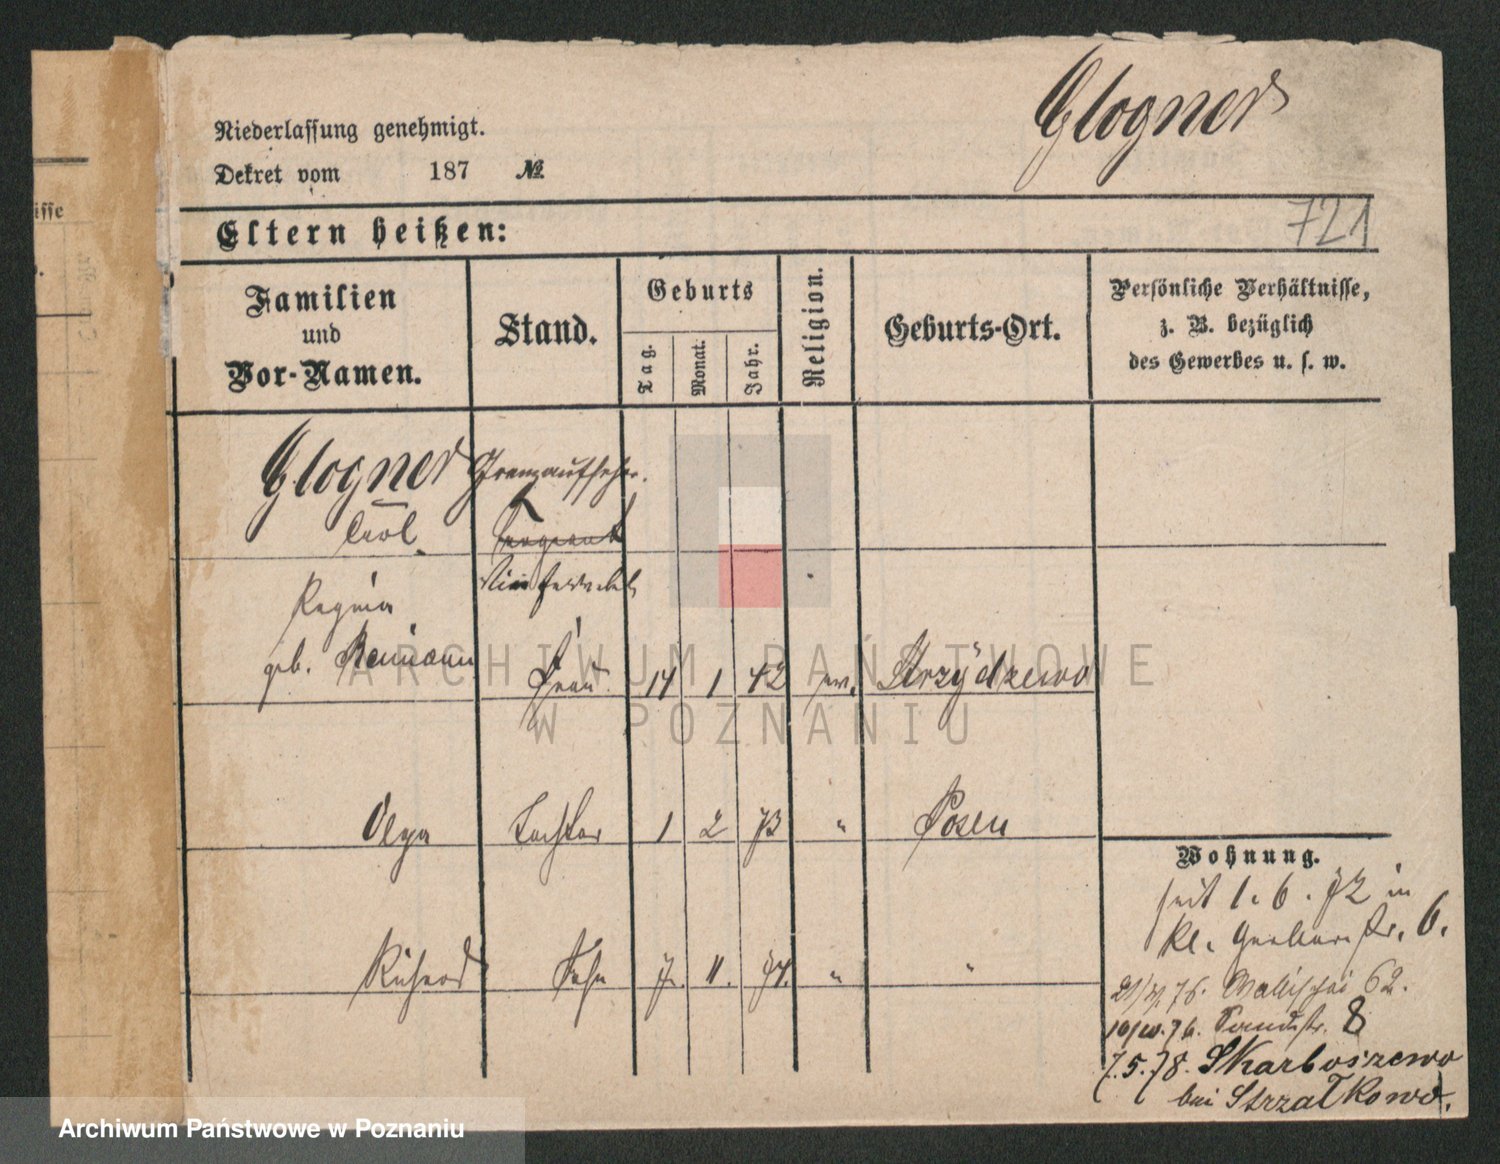 Glogner
Niederlassung genehmigt.
Dekret vom 187 №
721
Eltern heißen:
Familien
und
Vor-Namen.
Stand.
Geburts
Tag.
Monat.
Jahr.
Religion.
Geburts-Ort.
Persönliche Verhältnisse,
z. B. bezüglich
des Gewerbes u. s. w.
Glogner Grenzaufseher.
Carl Sergeant
Vicefeldwebel
Regina
geb. Reimann Frau 14 1 42 ev. Strzydzewo
Olga Tochter 1 2 73 " Posen
Richard Sohn 7. 11. 74. " "
Wohnung.
seit 1. 6. 72 in
Kl. Gerberstr. 6.
76. Wallischei 62.
76. 8
7.5.78. Skarboszewo
bei Strzałkowo.
isse
ARCHIWUM PAŃSTWOWE
W POZNANIU
Archiwum Państwowe w Poznaniu